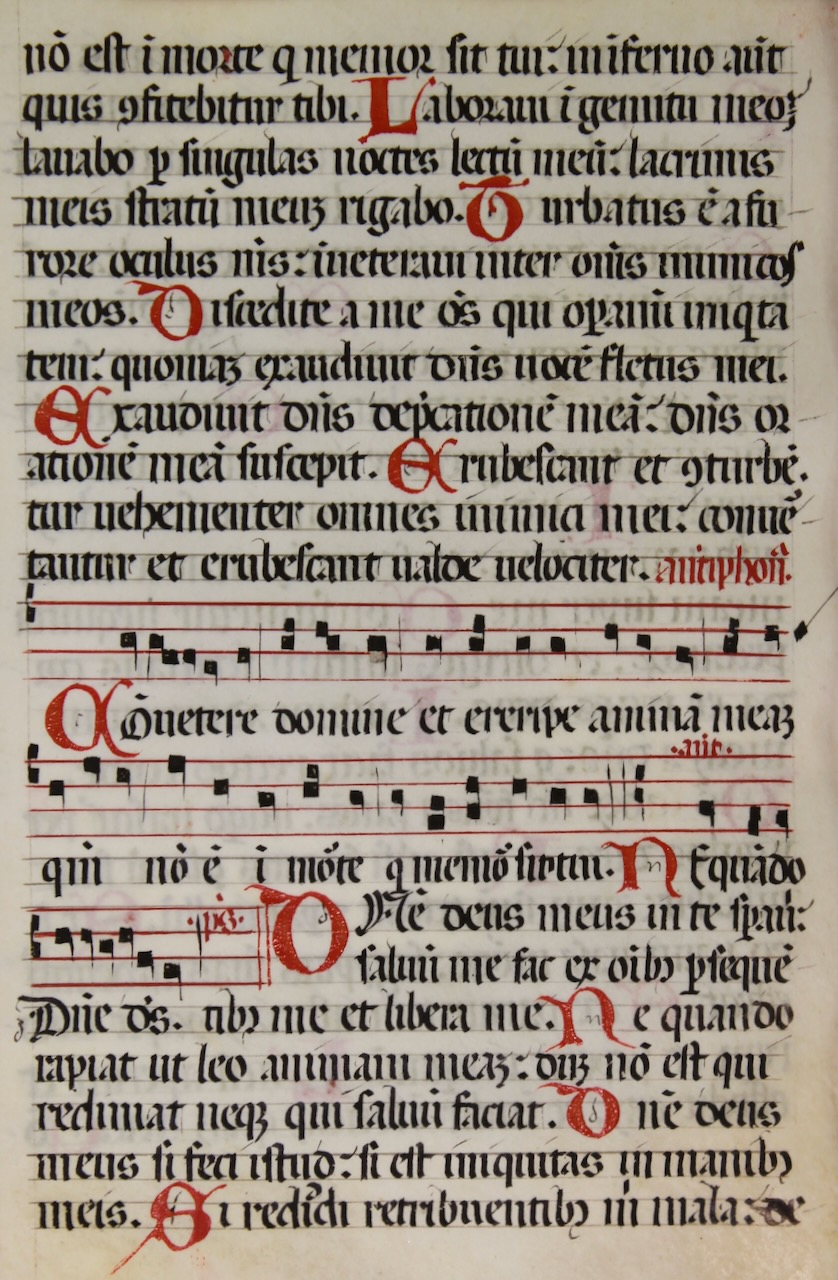 nō est ī morte q memor sit tui: ī inferno aūt
quis ꝯfitebitur tibi. Laboraui ī gemitu meoꝫ
lauabo ꝑ singulas noctes lectū meū: lacrimis
meis stratū meuꝫ rigabo. Turbatus ē a fu
rore oculus mīs: īueteraui inter oms̄ inimicos
meos. Discedite a me oīs qui oꝑamī iniqta
tem: quoniaꝫ exaudiuit dn̄s uocē fletus mei.
Exaudiuit dn̄s dep̄cationē meā: dn̄s or
ationē meā suscepit. Erubescant et ꝯturbē
tur uehementer omnes inimici mei: conuē
tantur et erubescant ualde uelociter. antiphon̄.
Cōuetere domine et ereripe animā meaꝫ
.añ.
qm̄ nō ē ī mōte q memō sit tui. Nequādo
.ps̄.
Dn̄e deus meus in te sꝑaui:
saluū me fac ex oībꝫ ꝑsequē
Dn̄e d's. tibꝫ me et libera me. Ne quando
rapiat ut leo animam meaꝫ: duꝫ nō est qui
redimat neqꝫ qui saluū faciat. Dn̄e deus
meus si feci istud: si est iniquitas in manibꝫ
meis. Si reddidi retribuentibꝫ m̄ mala: de